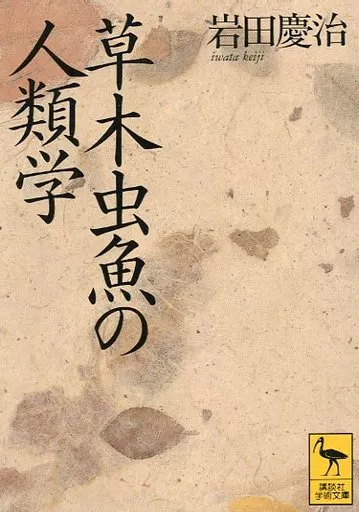 草木虫魚の
人類学
岩田慶治
iwata keiji
講談社
学術文庫